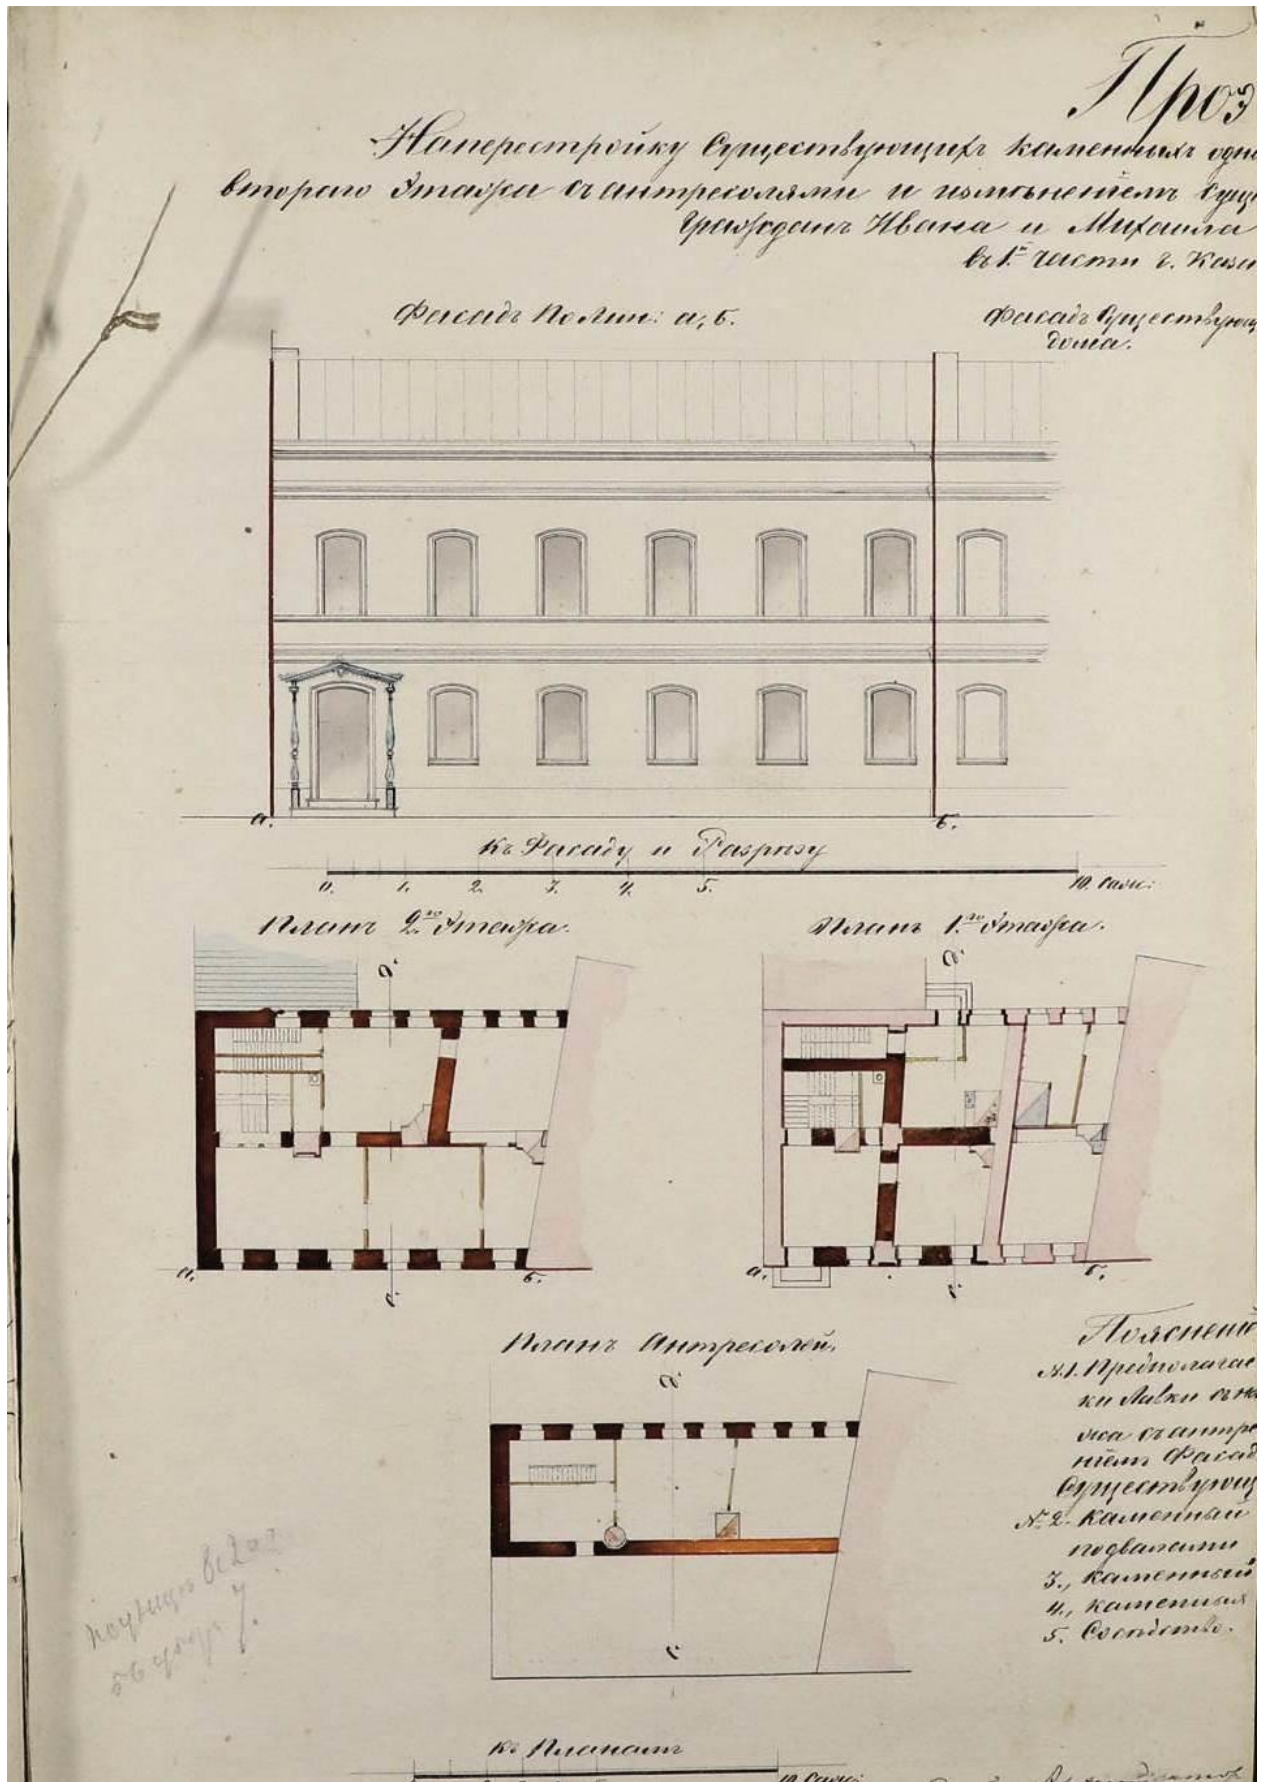 Проэ
На перестройку Существующихъ каменныхъ одно
втораго Этажа съ антресолями и измѣненіемъ Суще
Гражданъ Ивана и Михаила
въ 1й части г. Каза
Фасадъ По Лин: а, б.
Фасадъ Существующ
дома.
а. б.
къ Фасаду и Разрѣзу
0. 1. 2. 3. 4. 5. 10. саж:
Планъ 2го Этажа.
Планъ 1го Этажа.
а. б.
а. б.
Планъ Антресолей.
Пояснені
№.1. Предполагае
ки Лавки съ на
жа съ антре
ніемъ Фасад
Существующ
№ 2. Каменный
подвалами
3., Каменный
4., Каменныя
5. Сосѣдство.
къ Планамъ
10 Саж: